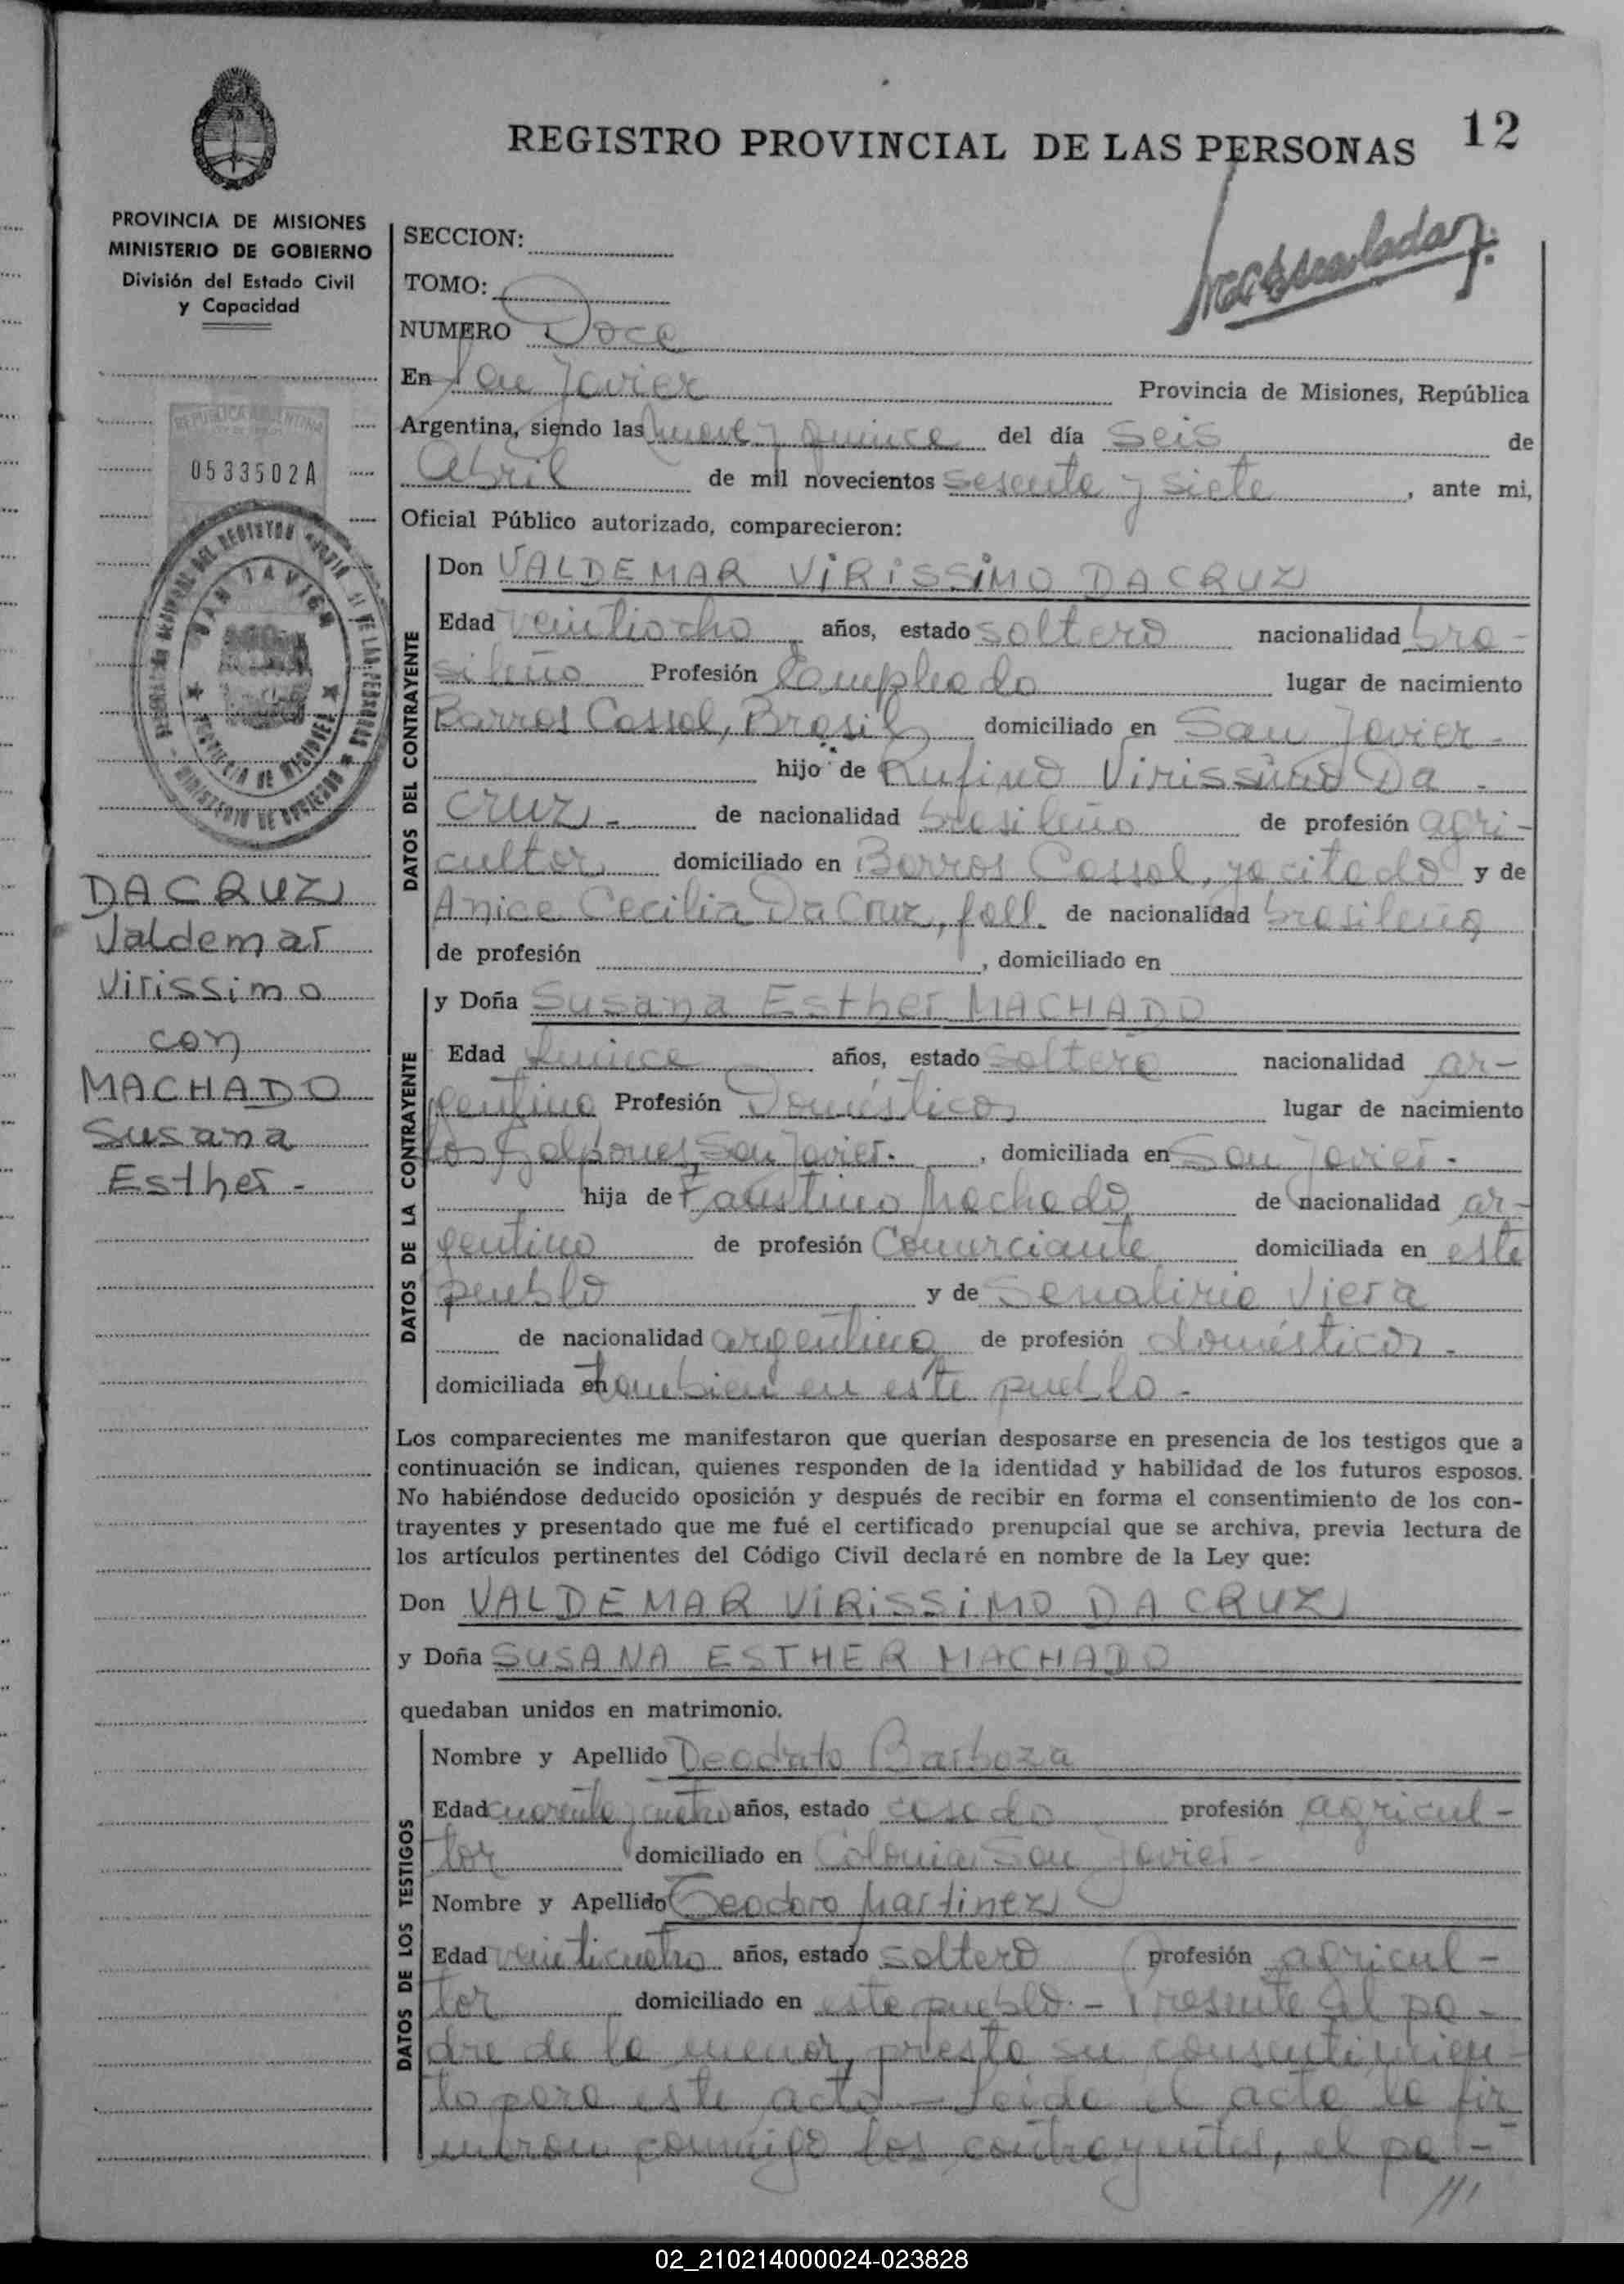 REGISTRO PROVINCIAL DE LAS PERSONAS 12
PROVINCIA DE MISIONES
MINISTERIO DE GOBIERNO
División del Estado Civil
y Capacidad
REPUBLICA ARGENTINA
0533502A
DA CRUZ
Valdemar
Virissimo
con
MACHADO
Susana
Esther -
SECCION:
TOMO:
NUMERO Doce
En San Javier Provincia de Misiones, República
Argentina, siendo las nueve y quince del día Seis de
Abril de mil novecientos sesenta y siete, ante mi,
Oficial Público autorizado, comparecieron:
DATOS DEL CONTRAYENTE
Don VALDEMAR VIRISSIMO DA CRUZ
Edad veintiocho años, estado soltero nacionalidad bra-
sileño Profesión Empleado lugar de nacimiento
Barros Cassal, Brasil domiciliado en San Javier -
hijo de Rufino Virissimo Da
Cruz - de nacionalidad brasileño de profesión agri-
cultor domiciliado en Barros Cassal, ya citado y de
Anice Cecilia Da Cruz, fall. de nacionalidad brasileña
de profesión , domiciliado en
DATOS DE LA CONTRAYENTE
y Doña Susana Esther MACHADO
Edad Quince años, estado soltera nacionalidad ar-
gentina Profesión Domésticos lugar de nacimiento
Los Galpones, San Javier. , domiciliada en San Javier -
hija de Faustino Machado de nacionalidad ar-
gentino de profesión Comerciante domiciliada en este
pueblo y de Senaliria Viera
de nacionalidad argentina de profesión domésticos -
domiciliada en tambien en este pueblo -
Los comparecientes me manifestaron que querían desposarse en presencia de los testigos que a
continuación se indican, quienes responden de la identidad y habilidad de los futuros esposos.
No habiéndose deducido oposición y después de recibir en forma el consentimiento de los con-
trayentes y presentado que me fué el certificado prenupcial que se archiva, previa lectura de
los artículos pertinentes del Código Civil declaré en nombre de la Ley que:
Don VALDEMAR VIRISSIMO DA CRUZ
y Doña SUSANA ESTHER MACHADO
quedaban unidos en matrimonio.
DATOS DE LOS TESTIGOS
Nombre y Apellido Deodato Barboza
Edad cuarenta y cuatro años, estado casado profesión agricul-
tor domiciliado en Colonia San Javier -
Nombre y Apellido Teodoro Martinez
Edad veinticuatro años, estado soltero profesión agricul-
tor domiciliado en este pueblo. - Presente el pa-
dre de la menor, presta su consentimien-
to para este acto - Leida el acta la fir
maron conmigo los contrayentes, el pa-
///
02_210214000024-023828